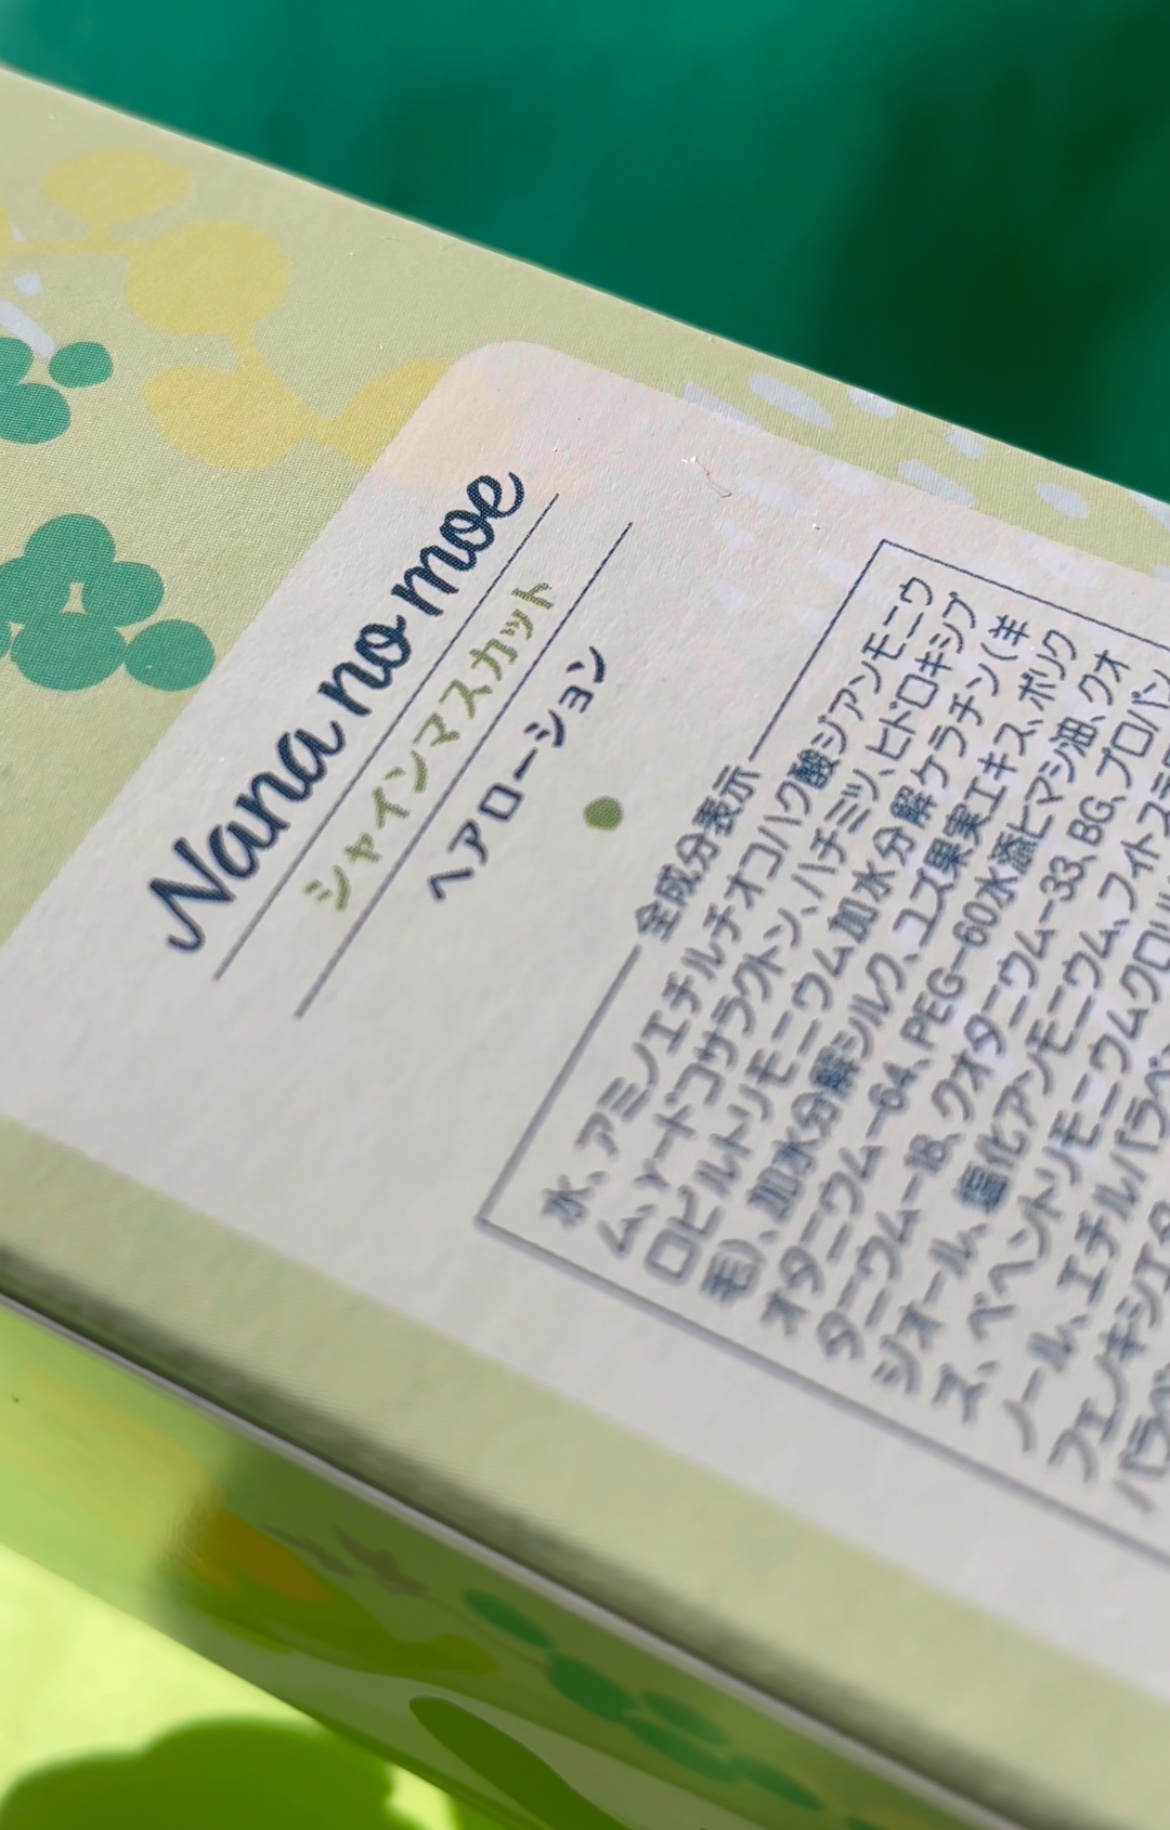 Nana no moe
シャインマスカット
ヘアローション
全成分表示
水、アミノエチルチオコハク酸ジアンモニウ
ム、γ-ドコサラクトン、ハチミツ、ヒドロキシプ
ロピルトリモニウム加水分解ケラチン(羊
毛)、加水分解シルク、ユズ果実エキス、ポリク
オタニウム-64、PEG-60水添ヒマシ油、クオ
タニウム-18、クオタニウム-33、BG、プロパン
ジオール、塩化アンモニウム、フィトステロ
ス、ベヘントリモニウムクロリ
ノール、エチルパラベン
フェノキシエタ
パラベ